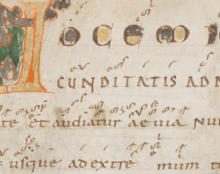 VOCEM I
CUNDITATIS ADN
ate et audiatur aeuia Nun
usque ad extre mum t